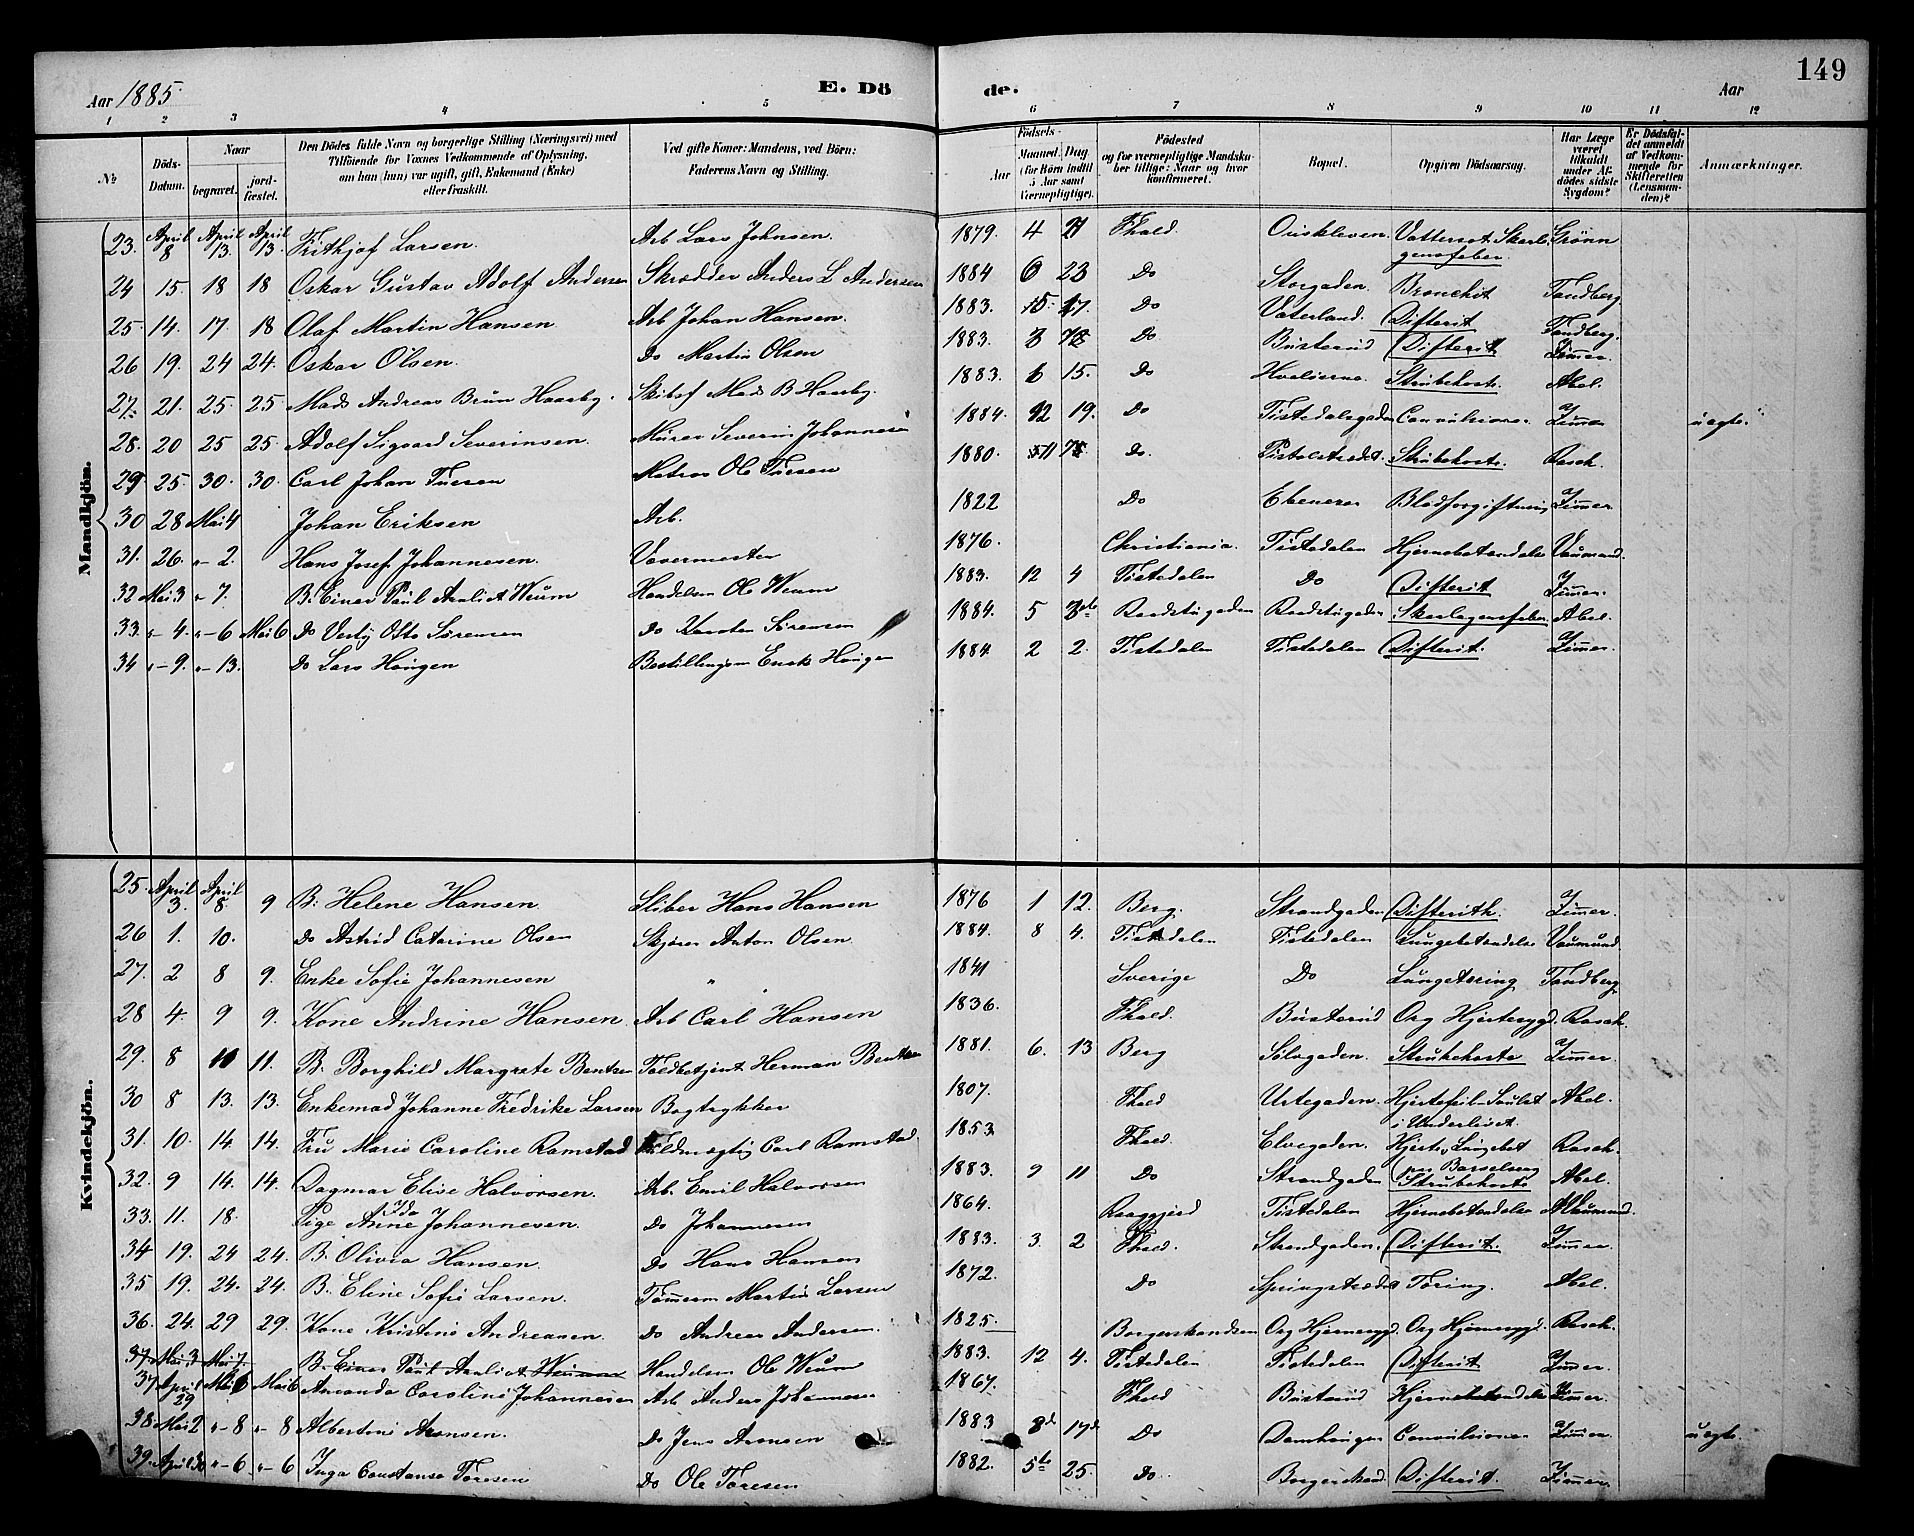 149
Aar 1885 E. Dö de. Aar
1 2 3 4 5 6 7 8 9 10 11 12
No Döds-Datum. Naar begravet. jord-fæstet. Den Dödes fulde Navn og borgerlige Stilling (Næringsvei) med Tilföiende for Voxnes Vedkommende af Oplysning, om han (hun) var ugift, gift, Enkemand (Enke) eller fraskilt. Ved gifte Koner: Mandens, ved Börn: Faderens Navn og Stilling. Födsels- Aar Maaned. Dag (for Börn indtil 5 Aar samt Værnepligtige). Födested og for værnepligtige Mandskaber tillige: Naar og hvor konfirmeret. Bopæl. Opgiven Dödsaarsag. Har Læge været tilkaldt under Afdödes sidste Sygdom? Er Dödsfaldet anmeldt af Vedkommende for Skifteretten (Lensmanden)? Anmærkninger.
Mandkjön.
23. April 8 April 13. April 13. Frithjof Larsen. Arb Lars Johnsen. 1879. 4 Fhald. Vattersot Skarlagensfeber. Grønn
24 15. 18 18 Oskar Gustav Adolf Andersen Skrædder Anders L Andersen 1884 6 23 Do Storgaden. Bronchit Tandberg
25. 14. 17. 18 Olaf Martin Hansen Arb Johan Hansen. 1883. Do Vaterland. Difterit Tandberg.
26 19. 24 24. Oskar Olsen. Do Martin Olsen 1883. 3 Do Busterud Difterit Zimmer.
27. 21. 25. 25 Mads Andreas Brun Haarby. Skibsf Mads B Haarby. 1883. 6 15. Do Hvaløerne. Strubehoste. Abel.
28. 20 25 25. Adolf Sigvard Severinsen. Murer Severin Johannesen 1884. 12 19. Do Tistedalsgaden Convulsioner Zimmer uegte.
29 25. 30. 30. Carl Johan Tuesen Matros Ole Tuesen 1880. Do. Pistolstrædet. Strubehoste. Rasch.
30 28 Mai 4 Johan Eriksen Arb. 1822 Do Ebenezer Blodforgiftning Zimmer
31. 26. "- 2. Hans Josef Johannesen. Vævermester 1876. Christiania. Tistedalen Hjernebetændelse Vaumund.
32 Mai 3 " 7. B. Einar Paul Analiot Weum Handelsm Ole Weum 1883. 12 4 Tistedalen Do Difterit Zimmer.
33. "- 4. "- 6 Mai 6 Do Verly Otto Sørensen Do Karsten Sørensen 1884. 5 Raadstugaden Raadstugaden Skarlagensfeber Abel.
34 "- 9. "- 13. Do Lars Haugen Bestillingsm Enok Haugen 1884. 2 2. Tistedalen Tistedalen Difterit. Zimmer.
Kvindekjön.
25. April 3. April 8 9 B. Helene Hansen. Sliber Hans Hansen 1876 1 12. Berg. Strandgaden Difterith. Zimmer.
26 1. 10. Do Astrid Catarine Olsen Skjører Anton Olsen. 1884. 8 4. Tistedalen Tistedalen Lungebetændelse Vaumund
27. 2 8 9. Enke Sofie Johannesen " 1841 Sverige Do Lungetæring Tandberg
28 4. 9 9. Kone Andrine Hansen Arb Carl Hansen 1836. Fhald. Busterud Org Hjertesygd. Rasch.
29. 8 10 11. B. Borghild Margrete Bentzen Toldbetjent Herman Bentzen 1881. 6. 13 Berg Sølvgaden. Strubehoste Zimmer.
30 8 13. 13. Enkemad Johanne Fredrike Larsen Bogtrykker 1807. Fhald Urtegaden. Hjertefeil - Svulst i Underlivet. Abel.
31. 10. 14 14. Fru Marie Caroline Ramstad Fuldmægtig Carl Ramstad. 1853 Fhald. Elvegaden. Hjerte, Lungebet Rasch.
32. 9 14. 14. Dagmar Elise Halvorsen. Arb. Emil Halvorsen 1883. 9 11 Do Strandgaden Strubehoste Abel.
33. 11. 18. Pige Anne Ida Johannesen. Do Johannesen 1864. Tistedalen Hjernebetændelse Vaumund.
34 19. 24 24. B. Olivia Hansen. Do Hans Hansen 1883. 3. 2 Fhald. Strandgaden. Difterit. Zimmer
35 19. 24. 24. B. Eline Sofie Larsen. Tømmerm Martin Larsen 1872. Do Springstrædet Tæring. Abel.
36. 24. 29 29. Kone Kristine Andreasen. Do Andreas Andersen. 1825. Borgerskandsen Org Hjernesygd. Org Hjernesygd. Rasch.
37. Mai 3 Mai 7. B. Einar Paul Analiot Weum Handelsm Ole Weum 1883. 12 4. Tistedalen Tistedalen Difterit Zimmer.
37 April 29 Mai 6 Mai 6 Amanda Caroline Johannesen Arb Anders Johannesen 1867. Fhald Busterud Hjernebetændelse Zimmer.
38. Mai 2 "- 8 "- 8 Albertine Aronsen. Do Jens Aronsen 1883 Do Damhaugen Convulsioner Zimmer. uegte.
39. April 30 "- 6 "- 6 Inga Constanse Toresen Do Ole Toresen 1882. 5 25. Do. Borgerskand. Difterit. Zimmer